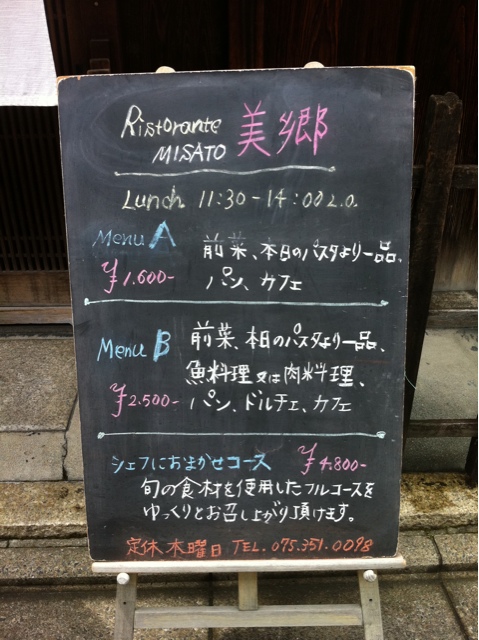 Ristorante 美郷
MISATO
Lunch 11:30-14:00 L.O.
Menu A 前菜、本日のパスタより一品、
¥1.600- パン、カフェ
Menu B 前菜、本日のパスタより一品、
魚料理又は肉料理、
¥2.500- パン、ドルチェ、カフェ
シェフにおまかせコース ¥4.800-
旬の食材を使用したフルコースを
ゆっくりとお召し上がり頂けます。
定休 木曜日 TEL. 075.351.0098